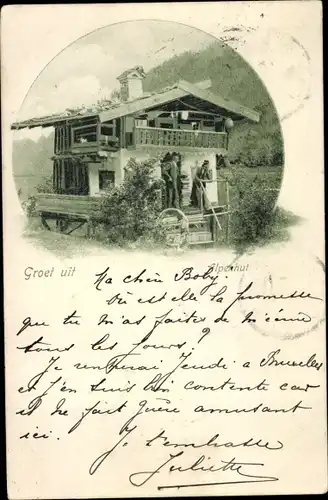 Groet uit Alpenhut
Ma chère Boby.
Où est elle la promesse
que tu m'as faite de m'écrire
tous les jours?
Je reviendrai Jeudi a Bruxelles
et j'en suis bien contente car
il ne fait guère amusant
ici.
Je t'embrasse
Juliette